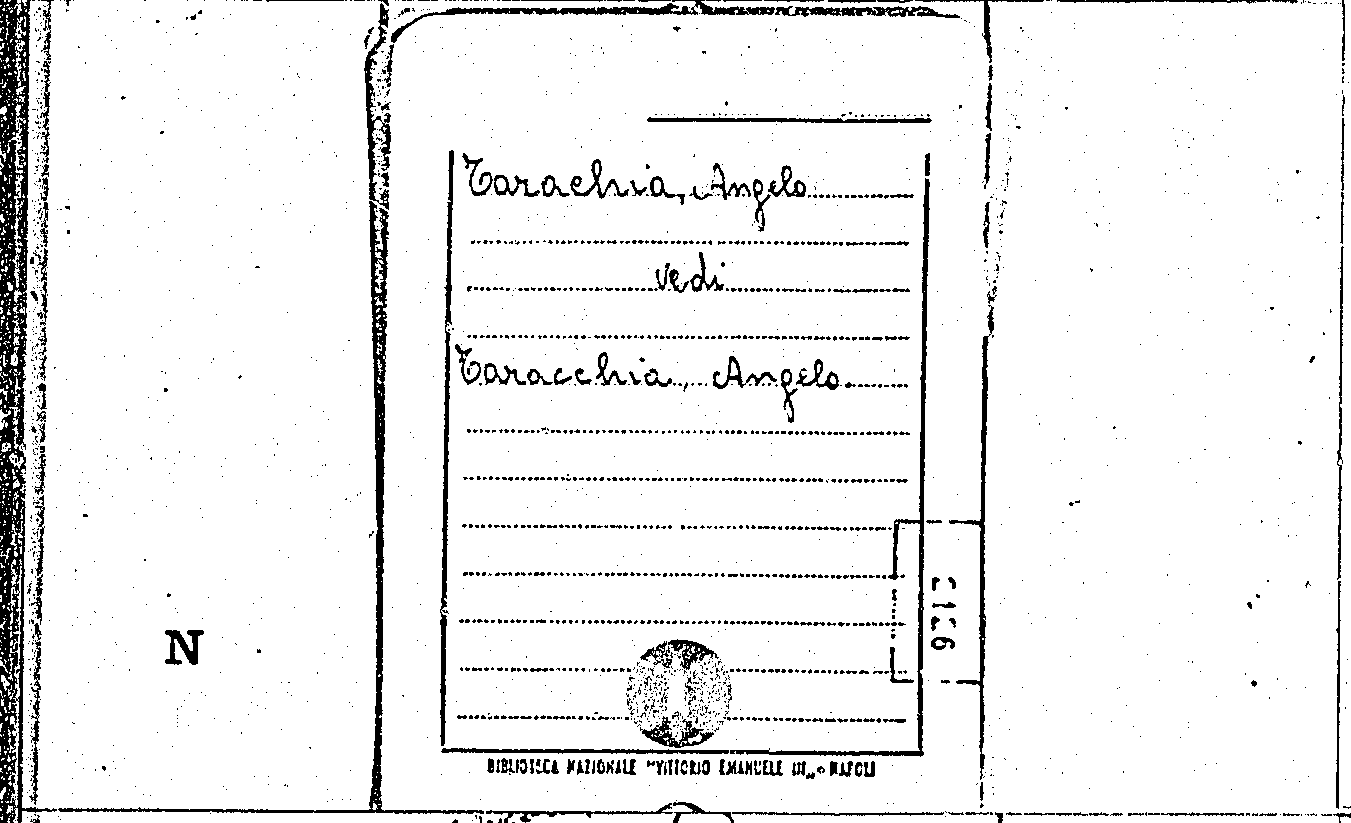 Tarachia, Angelo
vedi
Taracchia, Angelo
N
BIBLIOTECA NAZIONALE "VITTORIO EMANUELE III„ - NAPOLI